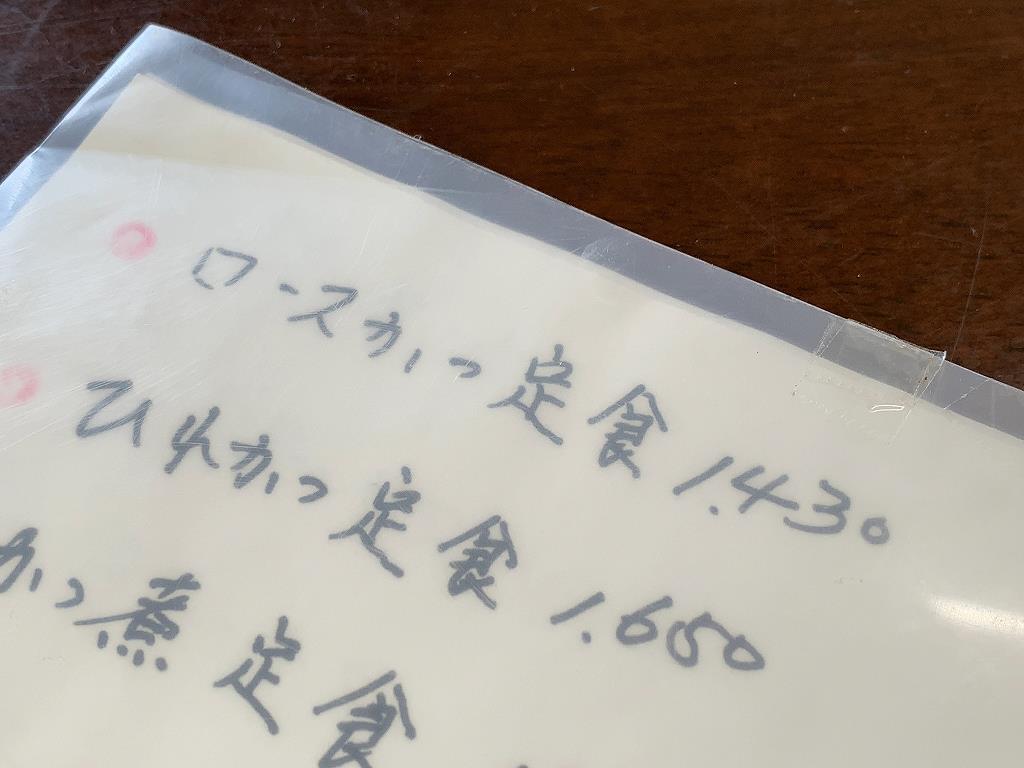 ロースかつ定食 1.430
ひれかつ定食 1.650
かつ煮定食